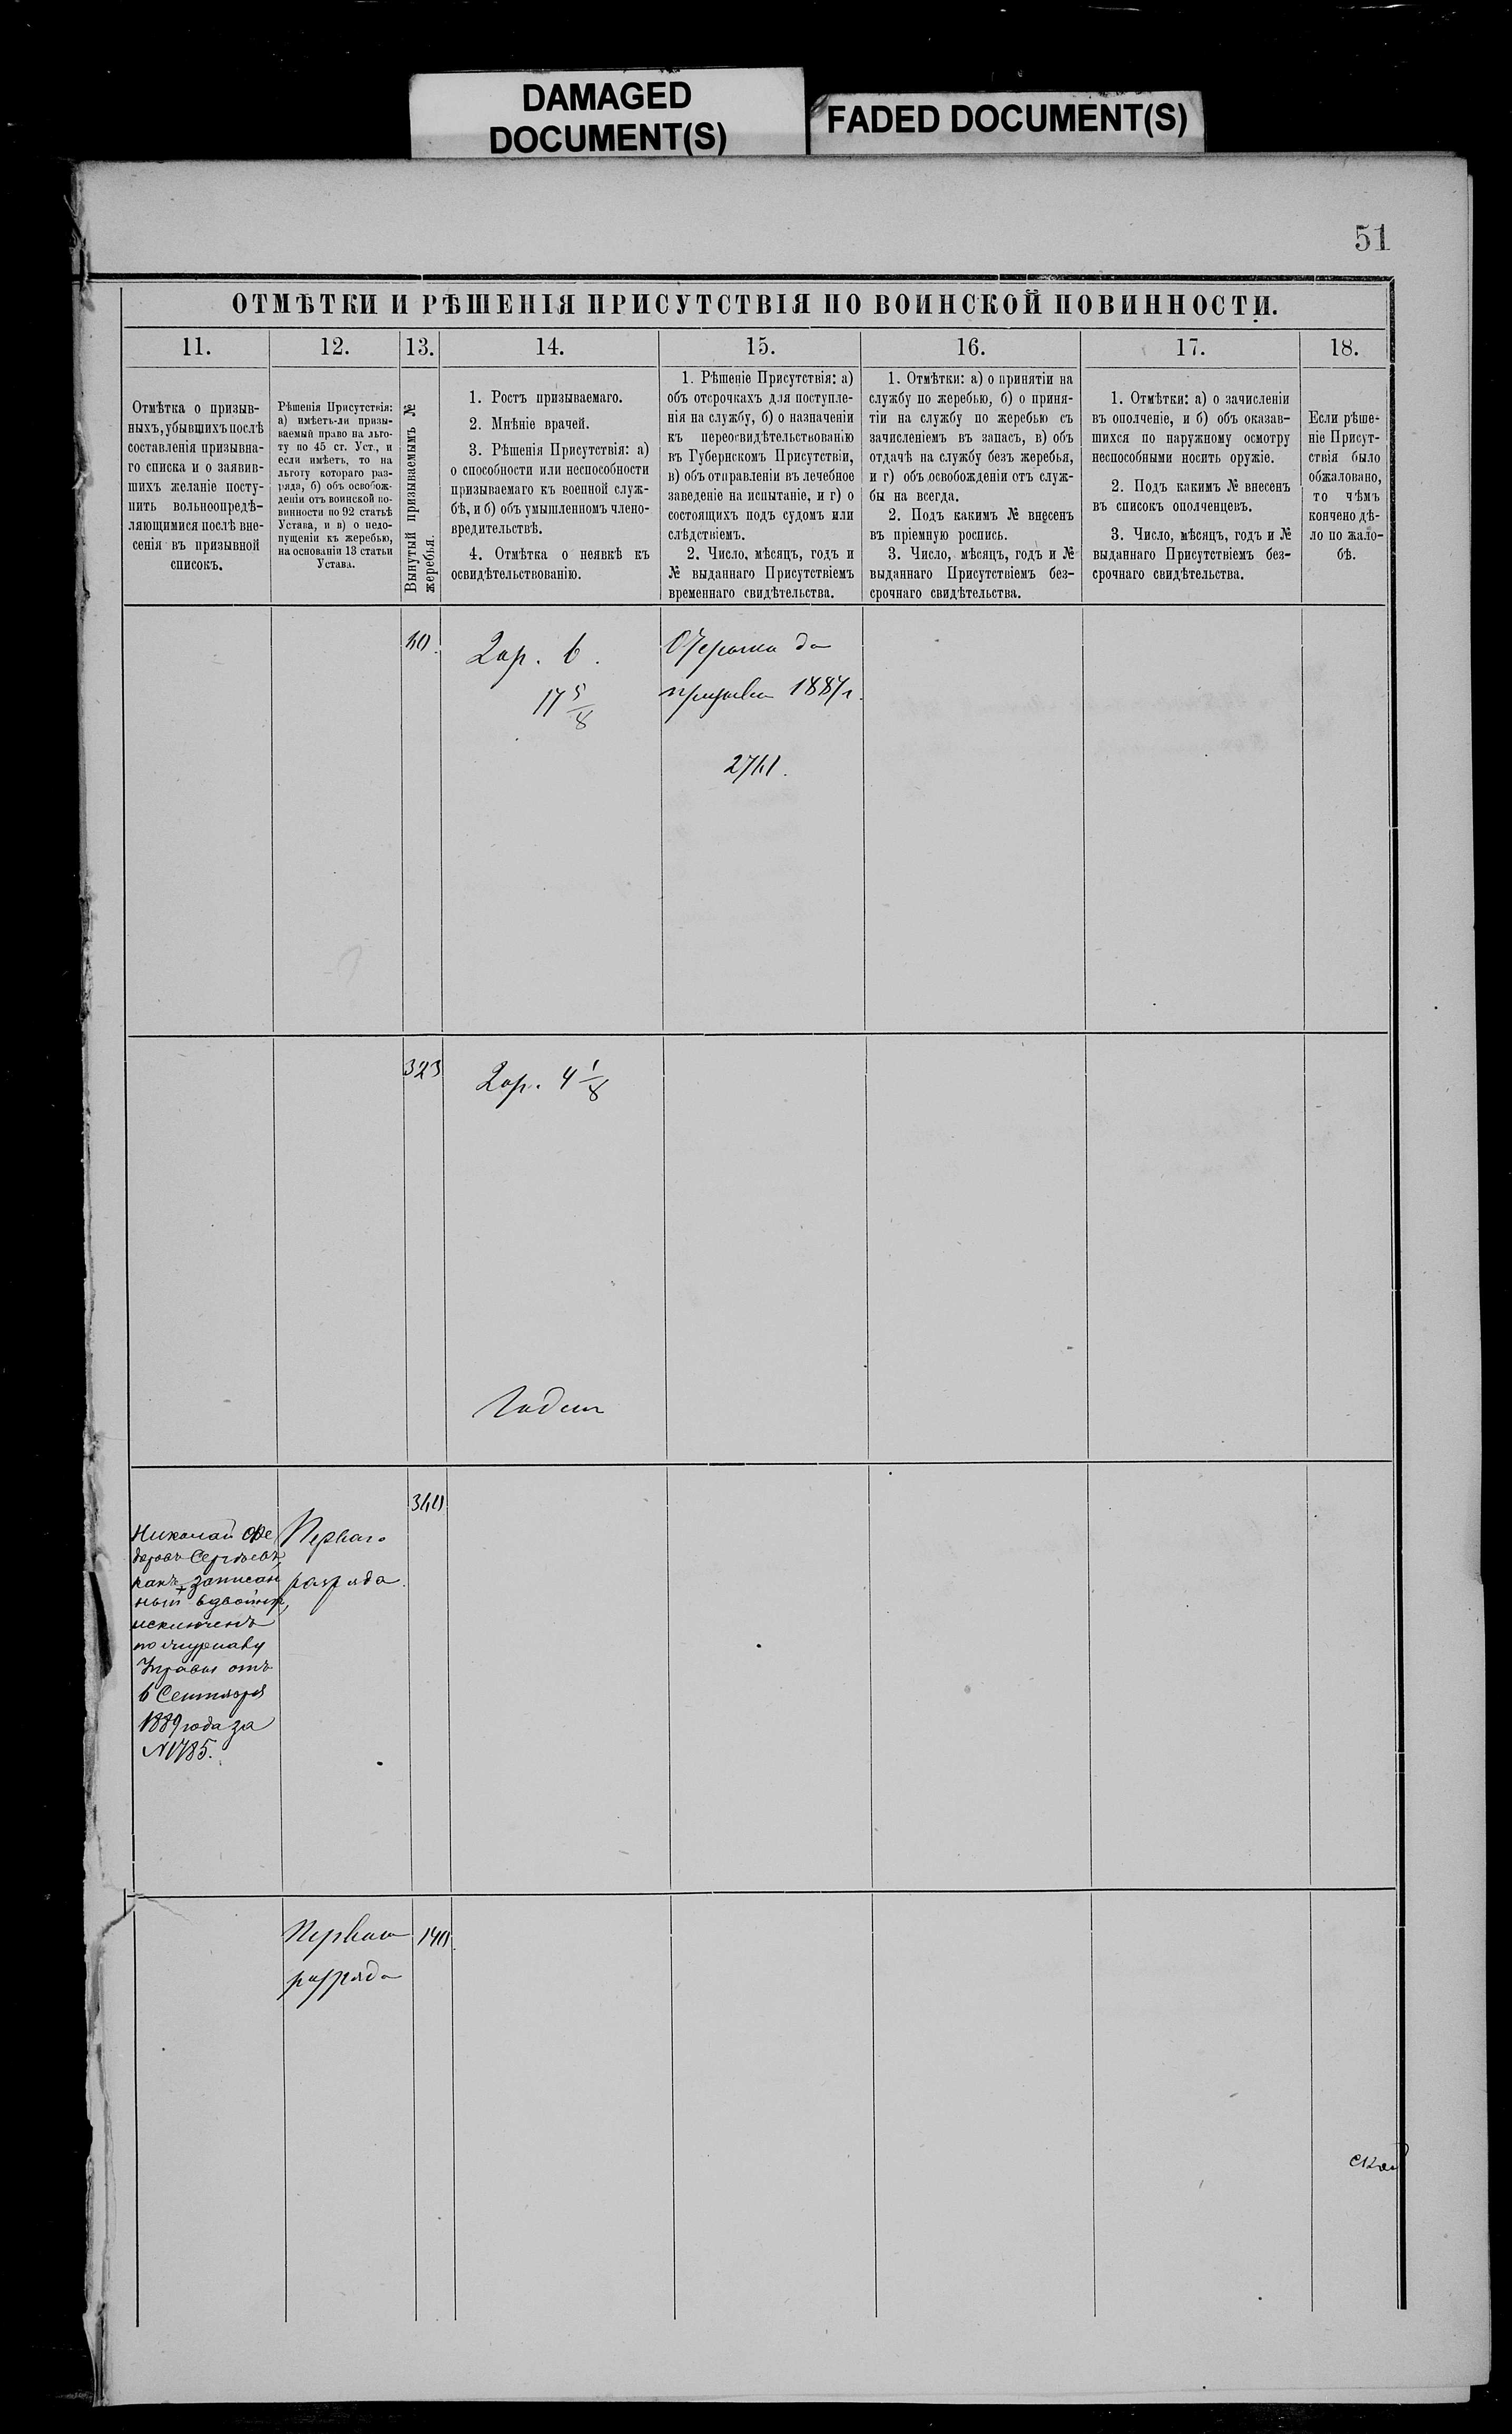 DAMAGED
DOCUMENT(S)
FADED DOCUMENT(S)
51
ОТМѢТКИ И РѢШЕНІЯ ПРИСУТСТВІЯ ПО ВОИНСКОЙ ПОВИННОСТИ.
11.
Отмѣтка о призыв-
ныхъ, убывшихъ послѣ
составленія призывна-
го списка и о заявив-
шихъ желаніе посту-
пить вольноопредѣ-
ляющимися послѣ вне-
сенія въ призывной
списокъ.
12.
Рѣшенія Присутствія:
а) имѣетъ-ли призы-
ваемый право на льго-
ту по 45 ст. Уст., и
если имѣетъ, то на
льготу котораго раз-
ряда, б) объ освобож-
деніи отъ воинской по-
винности по 92 статьѣ
Устава, и в) о недо-
пущеніи къ жеребью,
на основаніи 13 статьи
Устава.
13.
Вынутый призываемымъ №
жеребья.
14.
1. Ростъ призываемаго.
2. Мнѣніе врачей.
3. Рѣшенія Присутствія: а)
о способности или неспособности
призываемаго къ военной служ-
бѣ, и б) объ умышленномъ члено-
вредительствѣ.
4. Отмѣтка о неявкѣ къ
освидѣтельствованію.
15.
1. Рѣшеніе Присутствія: а)
объ отсрочкахъ для поступле-
нія на службу, б) о назначеніи
къ переосвидѣтельствованію
въ Губернскомъ Присутствіи,
в) объ отправленіи въ лечебное
заведеніе на испытаніе, и г) о
состоящихъ подъ судомъ или
слѣдствіемъ.
2. Число, мѣсяцъ, годъ и
№ выданнаго Присутствіемъ
временнаго свидѣтельства.
16.
1. Отмѣтки: а) о принятіи на
службу по жеребью, б) о приня-
тіи на службу по жеребью съ
зачисленіемъ въ запасъ, в) объ
отдачѣ на службу безъ жеребья,
и г) объ освобожденіи отъ служ-
бы на всегда.
2. Подъ какимъ № внесенъ
въ пріемную роспись.
3. Число, мѣсяцъ, годъ и №
выданнаго Присутствіемъ без-
срочнаго свидѣтельства.
17.
1. Отмѣтки: а) о зачисленіи
въ ополченіе, и б) объ оказав-
шихся по наружному осмотру
неспособными носить оружіе.
2. Подъ какимъ № внесенъ
въ списокъ ополченцевъ.
3. Число, мѣсяцъ, годъ и №
выданнаго Присутствіемъ без-
срочнаго свидѣтельства.
18.
Если рѣше-
ніе Присут-
ствія было
обжаловано,
то чѣмъ
кончено дѣ-
ло по жало-
бѣ.
2 ар. 6.
17 5/8
Отсрочка до
призыва
323
2 ар. 4 1/8
Годен
340
Николай Ѳе
доровъ Сергѣевъ,
какъ записан
ный вдвойнѣ,
исключенъ
по журналу
Управы отъ
6 Сентября
1889 года за
№ 1785.
Перваго
разряда.
Перваго
разряда
140